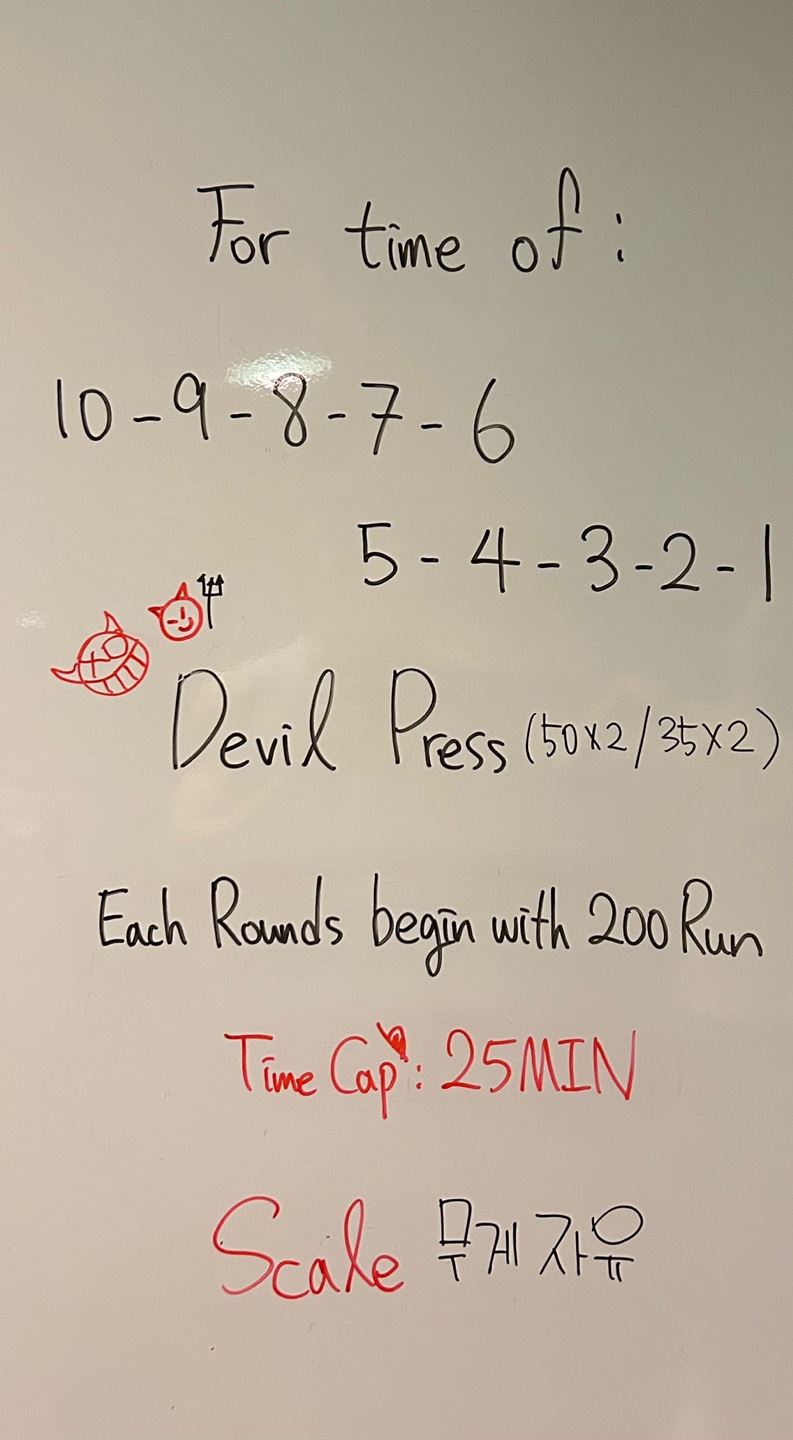 For time of :
10-9-8-7-6
5-4-3-2-1
Devil Press (50x2/35x2)
Each Rounds begin with 200 Run
Time Cap : 25MIN
Scale 무게 자유